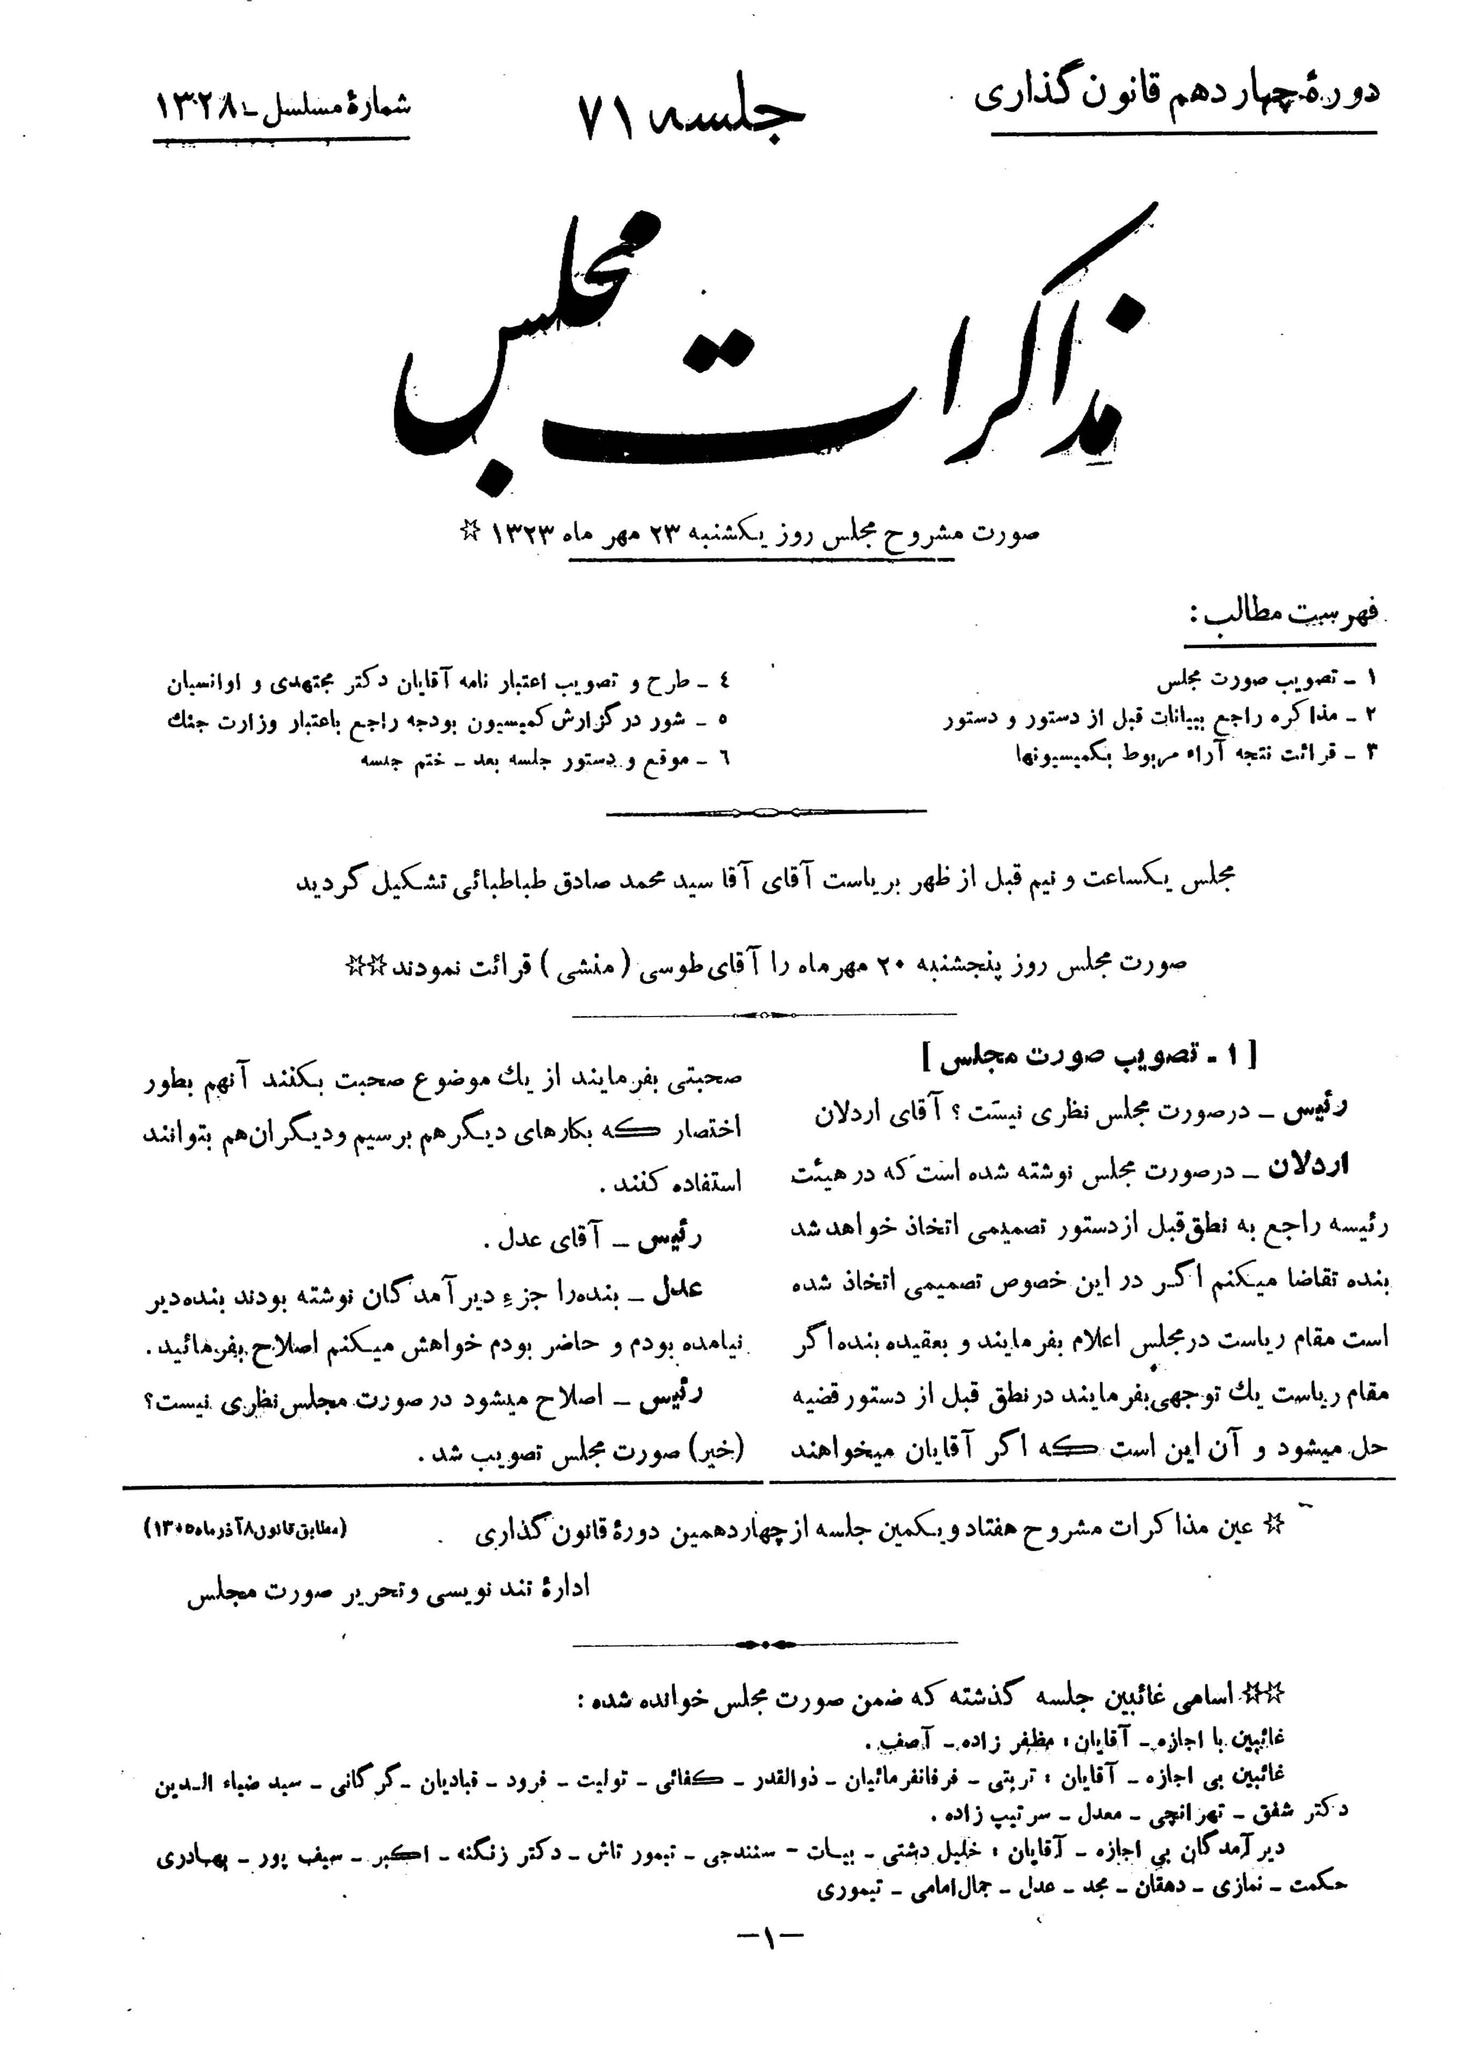 دورهٔ چهاردهم قانون گذاری
جلسه ۷۱
شمارهٔ مسلسل - ۱۳۰۲۸
مذاکرات مجلس
صورت مشروح مجلس روز یکشنبه ۲۳ مهر ماه ۱۳۲۳ ☆
فهرست مطالب :
۱ - تصویب صورت مجلس
۲ - مذاکره راجع ببیانات قبل از دستور و دستور
۳ - قرائت نتجه آراء مربوط بکمیسیونها
٤ - طرح و تصویب اعتبار نامه آقایان دکتر مجتهدی و اوانسیان
٥ - شور در گزارش کمیسیون بودجه راجع باعتبار وزارت جنك
٦ - موقع و دستور جلسه بعد - ختم جلسه
مجلس یکساعت و نیم قبل از ظهر بریاست آقای آقا سید محمد صادق طباطبائی تشکیل گردید
صورت مجلس روز پنجشنبه ۲۰ مهرماه را آقای طوسی (منشی) قرائت نمودند ☆☆
[ ۱ - تصویب صورت مجلس ]
رئیس - در صورت مجلس نظری نیست ؟ آقای اردلان
اردلان - در صورت مجلس نوشته شده است که در هیئت
رئیسه راجع به نطق قبل از دستور تصمیمی اتخاذ خواهد شد
بنده تقاضا میکنم اگر در این خصوص تصمیمی اتخاذ شده
است مقام ریاست در مجلس اعلام بفرمایند و بعقیده بنده اگر
مقام ریاست یك توجهی بفرمایند در نطق قبل از دستور قضیه
حل میشود و آن این است که اگر آقایان میخواهند
صحبتی بفرمایند از یك موضوع صحبت بکنند آنهم بطور
اختصار که بکارهای دیگر هم برسیم و دیگران هم بتوانند
استفاده کنند .
رئیس - آقای عدل .
عدل - بنده را جزء دیر آمدگان نوشته بودند بنده دیر
نیامده بودم و حاضر بودم خواهش میکنم اصلاح بفرمائید .
رئیس - اصلاح میشود در صورت مجلس نظری نیست؟
(خیر) صورت مجلس تصویب شد .
☆ عین مذاکرات مشروح هفتاد و یکمین جلسه از چهاردهمین دورهٔ قانون گذاری
(مطابق قانون ۸ آذر ماه ۱۳۰۵)
ادارهٔ تند نویسی و تحریر صورت مجلس
☆☆ اسامی غائبین جلسه گذشته که ضمن صورت مجلس خوانده شده :
غائبین با اجازه - آقایان : مظفر زاده - آصف .
غائبین بی اجازه - آقایان : تربتی - فرفانفرمائیان - ذوالقدر - کفائی - تولیت - فرود - قبادیان - گرگانی - سید ضیاء الدین
دکتر شفق - تهرانچی - معدل - سرتیپ زاده .
دیر آمدگان بی اجازه - آقایان : خلیل دشتی - بیات - سنندجی - تیمور تاش - دکتر زنگنه - اکبر - سیف پور - بهادری
حکمت - نمازی - دهقان - مجد - عدل - جمال امامی - تیموری
-۱-